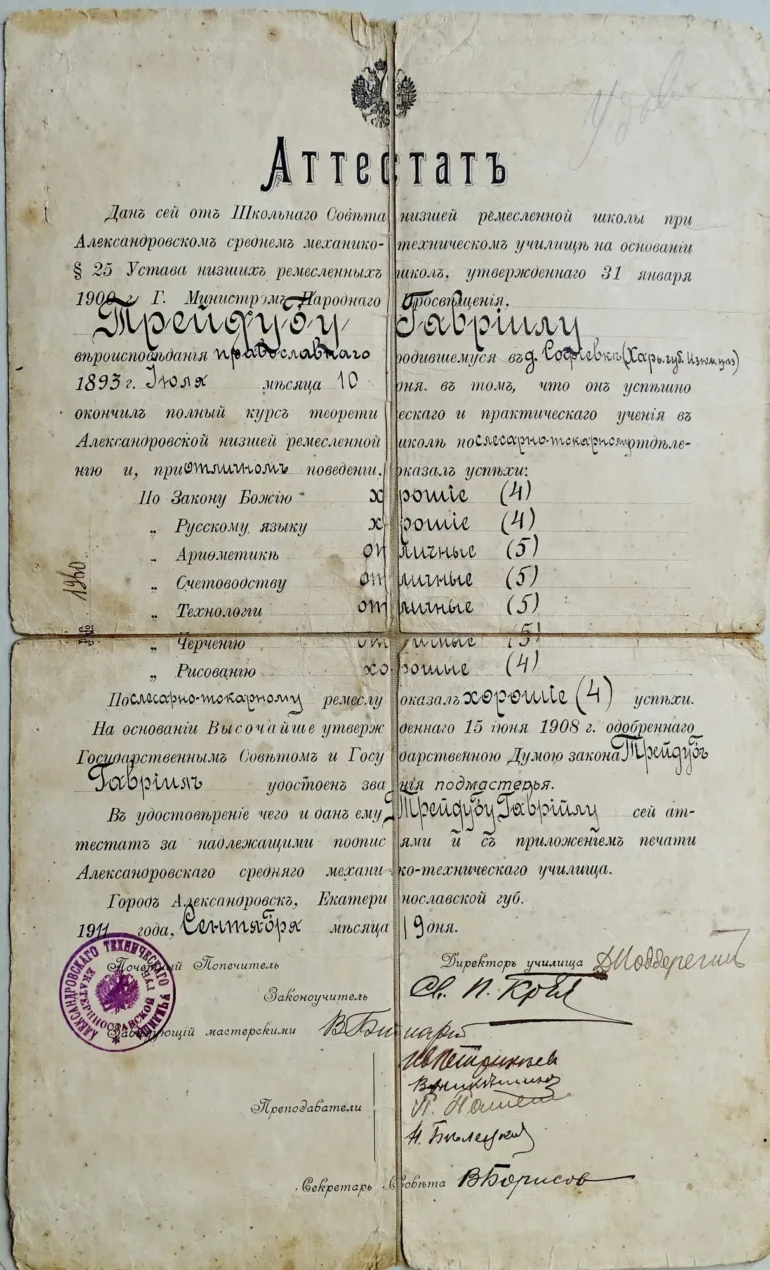 Аттестатъ
Данъ сей отъ Школьнаго Совѣта низшей ремесленной школы при
Александровскомъ среднемъ механико-техническомъ училищѣ на основаніи
§ 25 Устава низшихъ ремесленныхъ школъ, утвержденнаго 31 января
1900 г. Г. Министромъ Народнаго Просвѣщенія,
Трейдубу Гавріилу
вѣроисповѣданія православнаго родившемуся въ д. Софіевкѣ (Харьк. губ. Изюм. уѣз)
1893 г. Іюля мѣсяца 10 дня. въ томъ, что онъ успѣшно
окончилъ полный курсъ теоретическаго и практическаго ученія въ
Александровской низшей ремесленной школѣ по слесарно-токарному отдѣле-
нію и, при отличномъ поведеніи, оказалъ успѣхи:
По Закону Божію хорошіе (4)
„ Русскому языку хорошіе (4)
„ Ариѳметикѣ отличные (5)
„ Счетоводству отличные (5)
„ Технологіи отличные (5)
„ Черченію отличные (5)
„ Рисованію хорошые (4)
По слесарно-токарному ремеслу оказалъ хорошіе (4) успѣхи.
На основаніи Высочайше утвержденнаго 15 іюня 1908 г. одобреннаго
Государственнымъ Совѣтомъ и Государственною Думою закона Трейдубъ
Гавріилъ удостоенъ званія подмастерья.
Въ удостовѣреніе чего и данъ ему, Трейдубу Гавріилу сей ат-
тестатъ за надлежащими подписями и съ приложеніемъ печати
Александровскаго средняго механико-техническаго училища.
Городъ Александровскъ, Екатеринославской губ.
1911 года, Сентября мѣсяца 19 дня.
Почетный Попечитель
Директоръ училища
Законоучитель Св. П.
Завѣдующій мастерскими
Преподаватели
Н. Бѣлецкій
Секретарь Совѣта В Борисов
№ 1960
АЛЕКСАНДРОВСКАГО ТЕХНИЧЕСКАГО УЧИЛИЩА
ЕКАТЕРИНОСЛАВСКОЙ ГУБ.